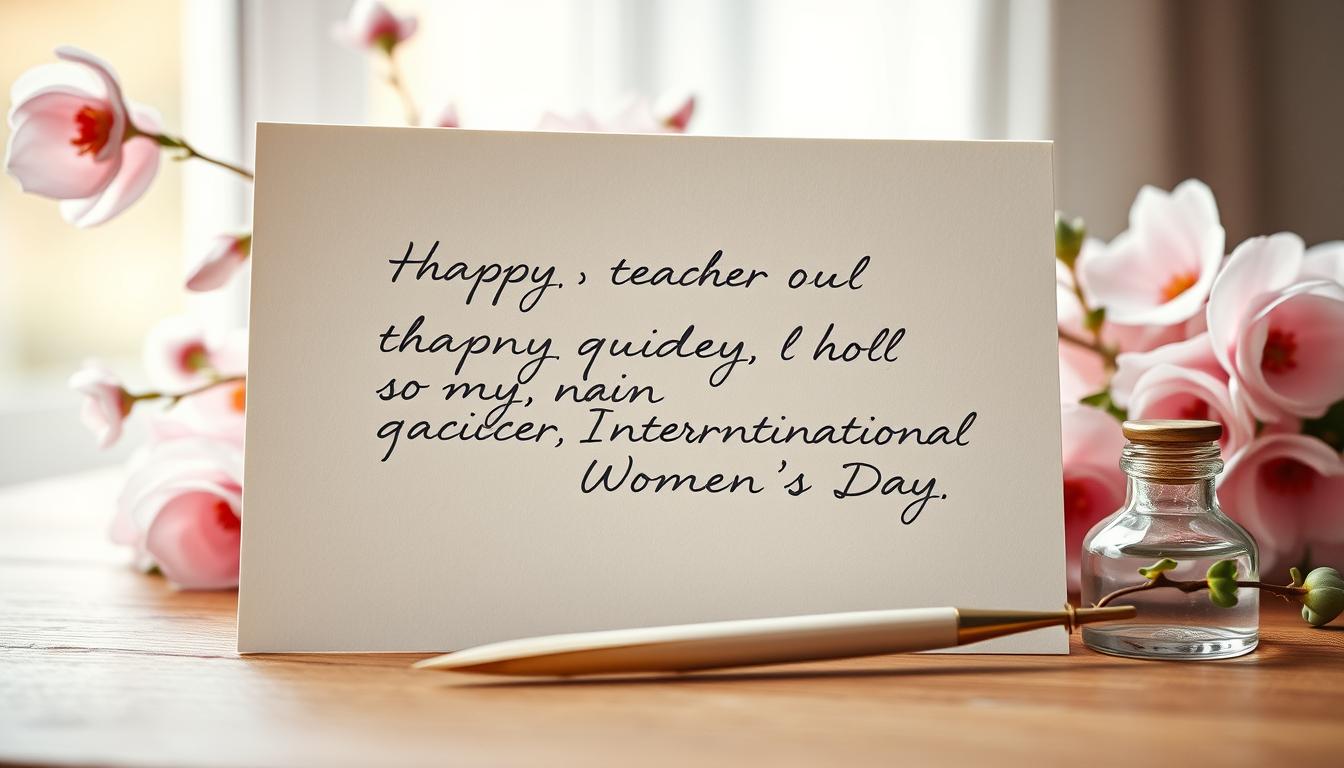 Thappy., teacher oul
thapny quidey, l holl
so my, nain
gaciccer, Interrntinational
Women's Day.